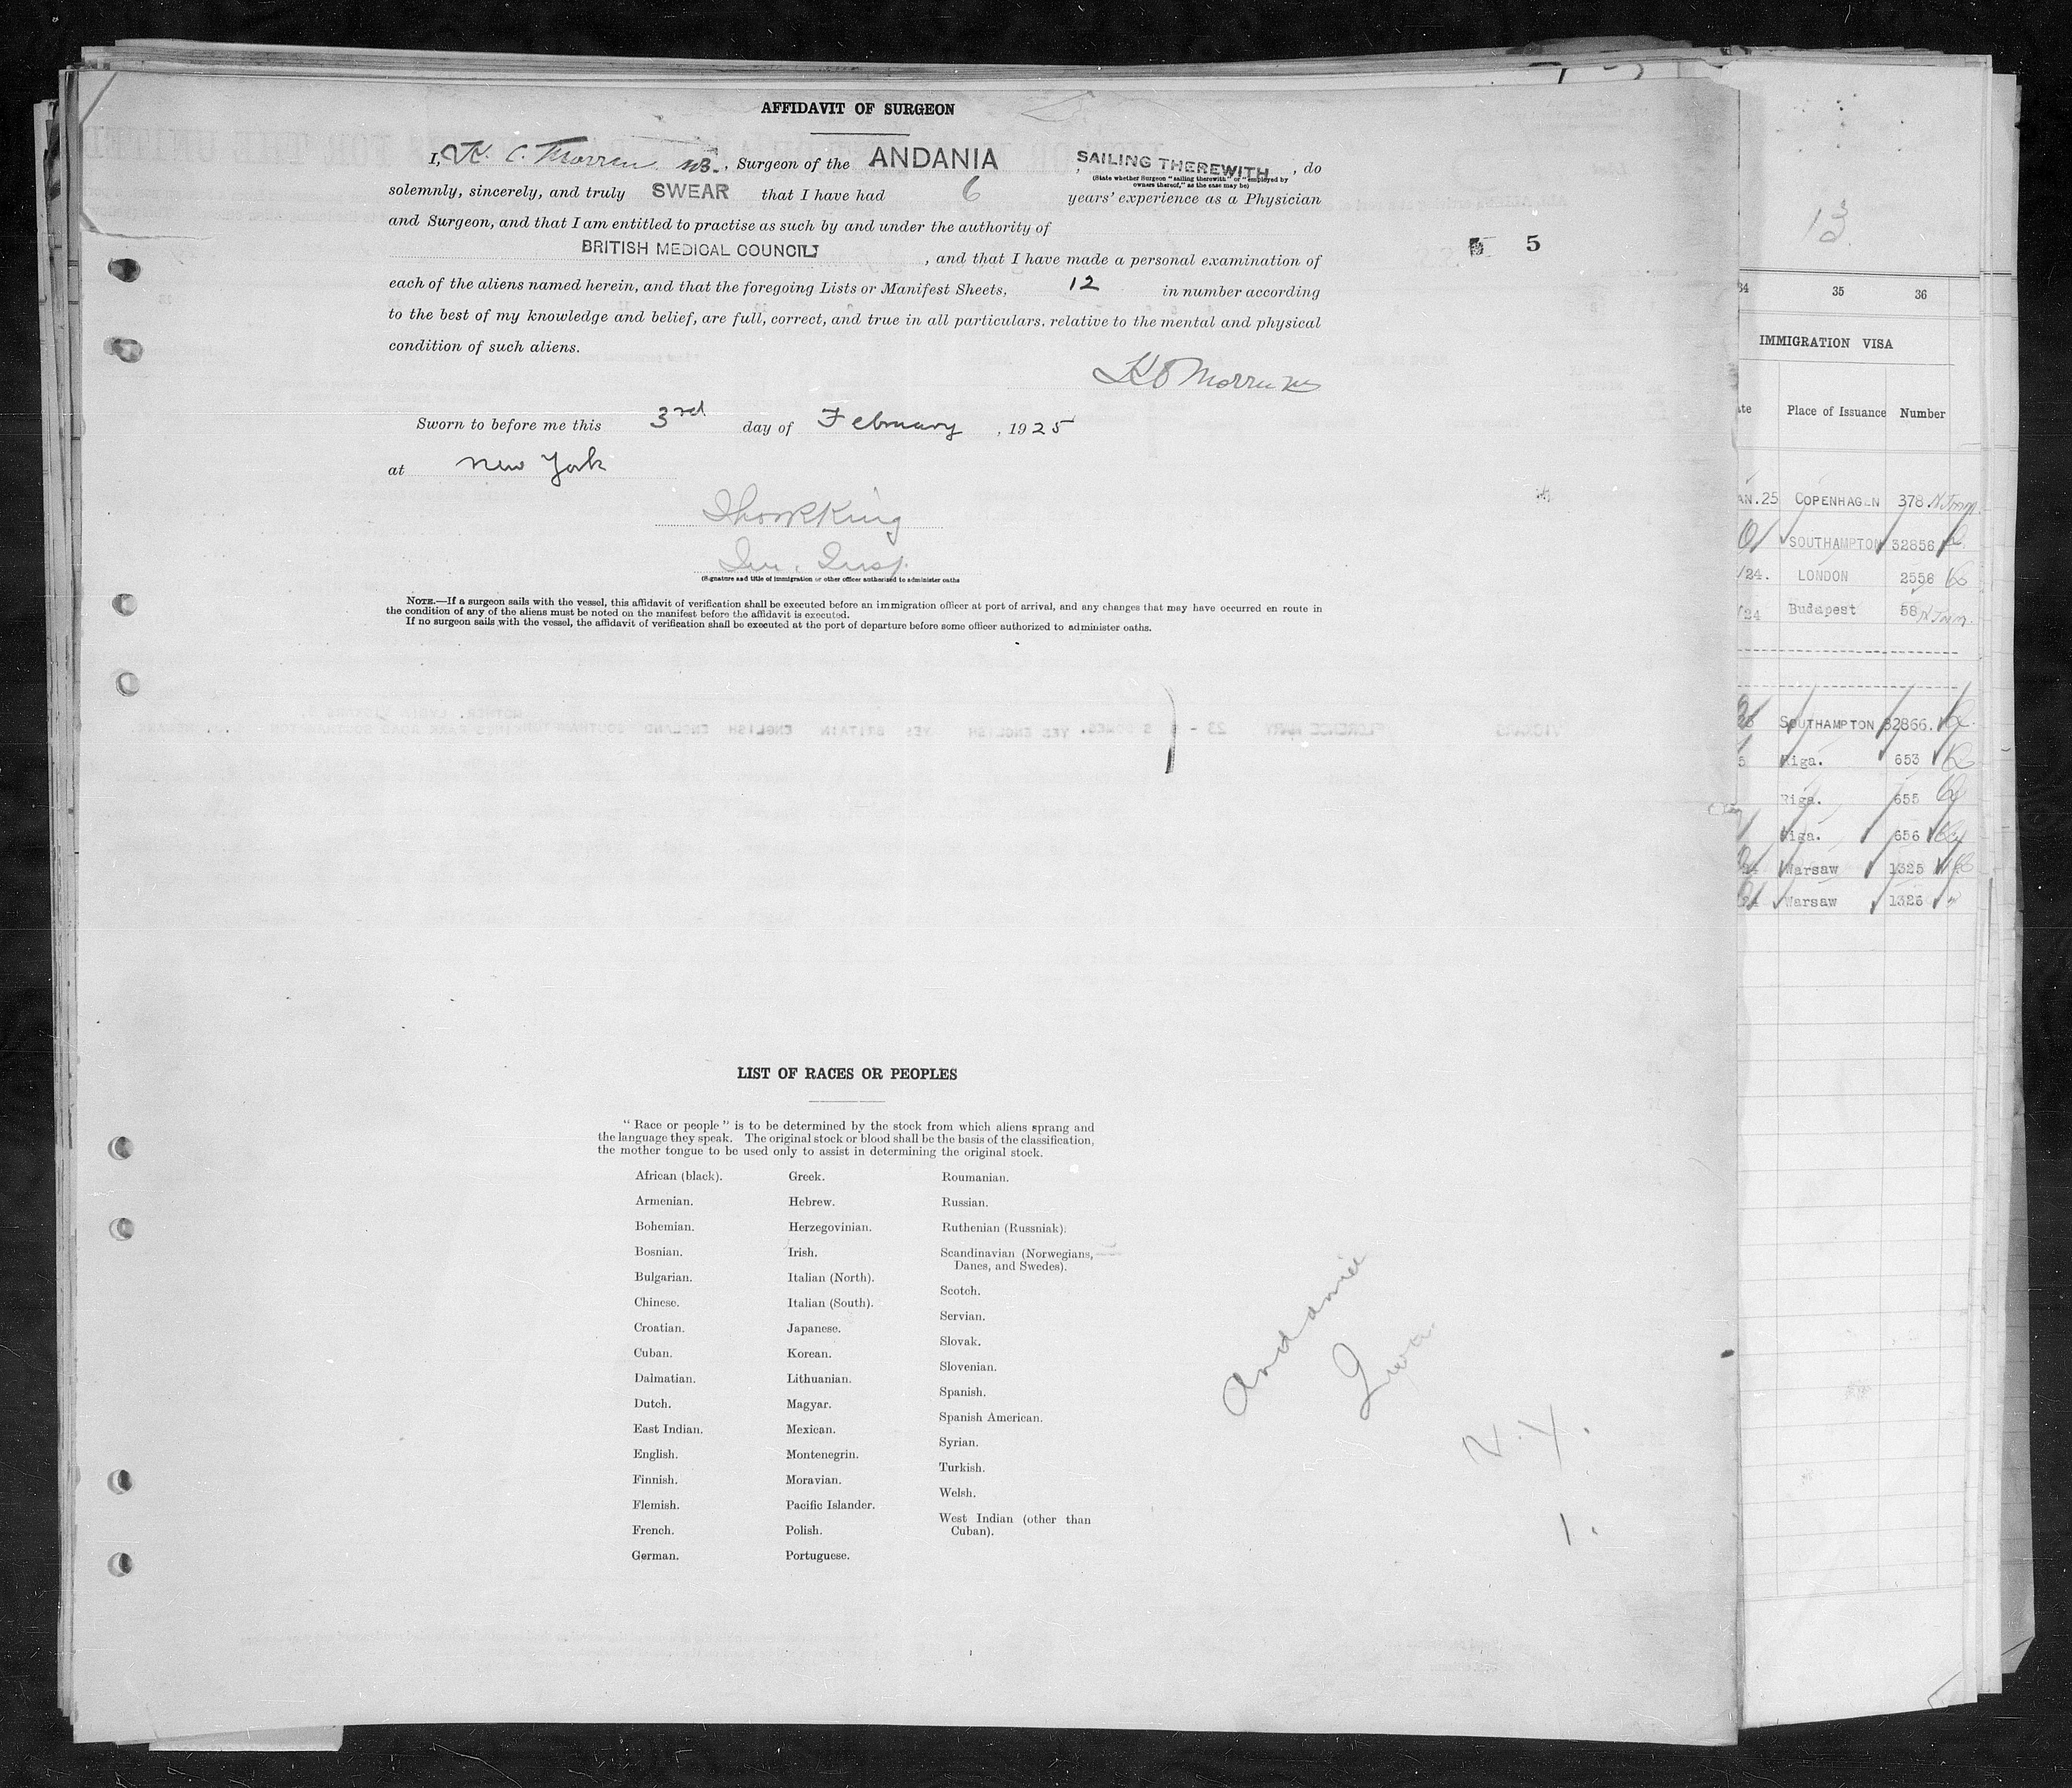 AFFIDAVIT OF SURGEON
I, K. C. Morren MB., Surgeon of the ANDANIA, SAILING THEREWITH, do
(State whether Surgeon "sailing therewith" or "employed by
owners thereof," as the case may be)
solemnly, sincerely, and truly SWEAR that I have had 6 years' experience as a Physician
and Surgeon, and that I am entitled to practise as such by and under the authority of
BRITISH MEDICAL COUNCIL, and that I have made a personal examination of
each of the aliens named herein, and that the foregoing Lists or Manifest Sheets, 12 in number according
to the best of my knowledge and belief, are full, correct, and true in all particulars, relative to the mental and physical
condition of such aliens.
Sworn to before me this 3rd day of February, 1925
at New York
(Signature and title of immigration or other officer authorized to administer oaths
NOTE.—If a surgeon sails with the vessel, this affidavit of verification shall be executed before an immigration officer at port of arrival, and any changes that may have occurred en route in
the condition of any of the aliens must be noted on the manifest before the affidavit is executed.
If no surgeon sails with the vessel, the affidavit of verification shall be executed at the port of departure before some officer authorized to administer oaths.
5
LIST OF RACES OR PEOPLES
"Race or people" is to be determined by the stock from which aliens sprang and
the language they speak. The original stock or blood shall be the basis of the classification,
the mother tongue to be used only to assist in determining the original stock.
African (black).
Armenian.
Bohemian.
Bosnian.
Bulgarian.
Chinese.
Croatian.
Cuban.
Dalmatian.
Dutch.
East Indian.
English.
Finnish.
Flemish.
French.
German.
Greek.
Hebrew.
Herzegovinian.
Irish.
Italian (North).
Italian (South).
Japanese.
Korean.
Lithuanian.
Magyar.
Mexican.
Montenegrin.
Moravian.
Pacific Islander.
Polish.
Portuguese.
Roumanian.
Russian.
Ruthenian (Russniak).
Scandinavian (Norwegians,
Danes, and Swedes).
Scotch.
Servian.
Slovak.
Slovenian.
Spanish.
Spanish American.
Syrian.
Turkish.
Welsh.
West Indian (other than
Cuban).
N.Y.
1.
13
34 35 36
IMMIGRATION VISA
Place of Issuance Number
AN.25 COPENHAGEN 378
SOUTHAMPTON 32856
/24. LONDON 2556
/24 Budapest 58
SOUTHAMPTON 32866.
5 Riga. 653
Riga. 655
Riga. 656
24 Warsaw 1325
24 Warsaw 1326